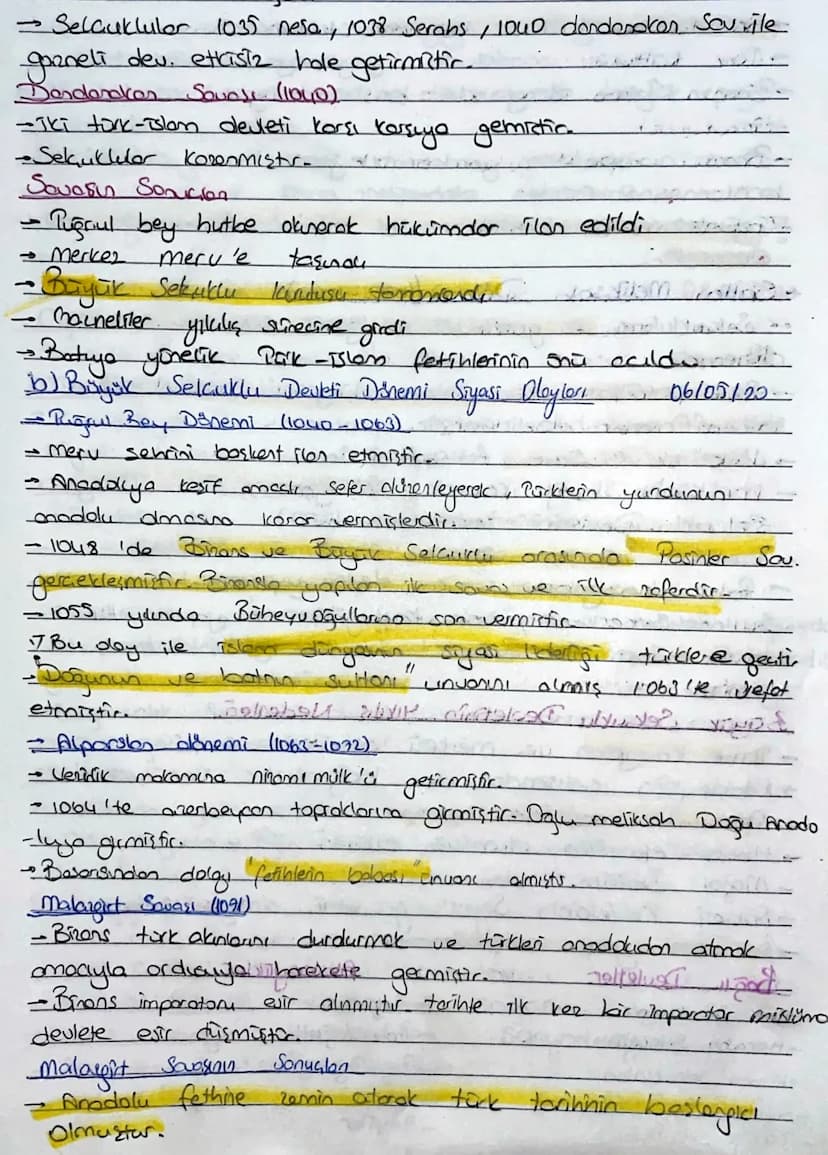 → Selçuklular 1035 nesa, 1038 Serahs, 1040 dandanakan Sav. ile
gazneli dev. etkisiz hale getirmiştir.
Dandanakan Savaşı (1040)
→ iki türk-islam devleti karşı karşıya gelmiştir.
→ Selçuklular kazanmıştır.
Savaşın Sonuçları
→ Tuğrul bey hutbe okunarak hükümdar ilan edildi
→ Merkez merv'e taşındı
→ Büyük Selçuklu kuruluşu tamamlandı
→ Gazneliler yıkılış sürecine girdi
→ Batıya yönelik Türk-islam fetihlerinin önü açıldı.
b) Büyük Selçuklu Devleti Dönemi Siyasi Olayları 06/05/20
→ Tuğrul Bey Dönemi (1040-1063)
→ Merv şehrini başkent ilan etmiştir.
→ Anadoluya keşif amaçlı sefer düzenleyerek, Türklerin yurdunun
anadolu olmasına karar vermişlerdir.
→ 1048'de Bizans ve Büyük Selçuklu arasında Pasinler Sav.
gerçekleşmiştir. Bizansla yapılan ilk savaş ve ilk zaferdir.
→ 1055 yılında Büheyvoğullarına son vermiştir.
→ Bu olay ile islam dünyasının siyasi liderliği türklere geçti.
→ "Doğunun ve batının sultanı" ünvanını almış 1063'te vefat
etmiştir.
→ Alparslan dönemi (1063-1072)
→ Vezirlik makamına nizamı mülk'ü getirmiştir.
→ 1064'te azerbeycan topraklarına girmiştir. Oğlu melikşah Doğu Anado
-luya girmiştir.
→ Başarısından dolayı "fetihlerin babası" ünvanı almıştır.
Malazgirt Savaşı (1091)
→ Bizans türk akınlarını durdurmak ve türkleri anadoludan atmak
amacıyla ordusuyla harekete geçmiştir.
→ Bizans imparatoru esir alınmıştır. tarihte ilk kez bir imparator müslüma
devlete esir düşmüştür.
Malazgirt Savaşının Sonuçları
→ Anadolu fethine zemin atarak türk tarihinin başlangıcı
olmuştur.